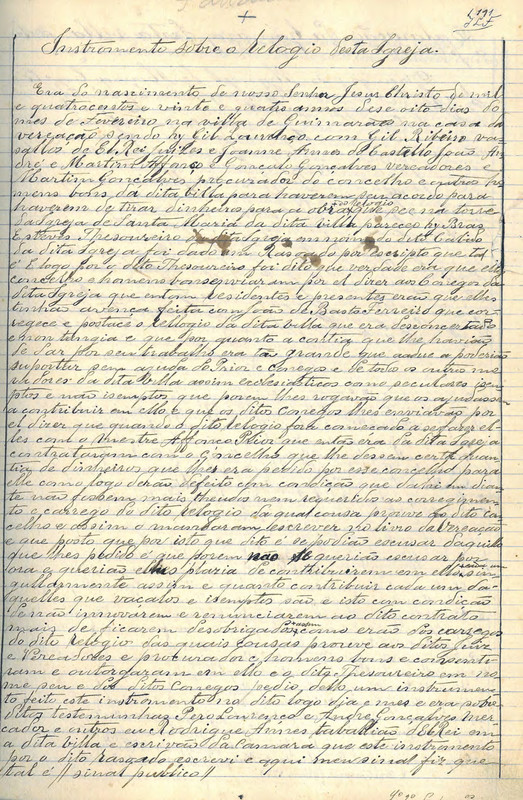 Instromento sobre o Relogio desta Igreja.
Era do nascimento de nosso Senhor Jesus Christo de mil
e quatrocentos e vinte e quatro annos desoito dias do
mes de Fevereiro na villa de Guimarães na casa da
vereação sendo hy Gil Lourenço com Gil Ribeiro va
sallos de El-Rei Juizes e Joanne Annes do Castello João An
dré e Martim Affonço e Gonçalo Gonçalves vereadores e
Martim Gonçalves procurador do concelho e outros ho
mens bons da dita villa para haverem seu acordo para
haverem de tirar dinheiro para a obra que see na torre
do relogio
da Igreja de Santa Maria da dita villa pareceo hy Braz
Esteves Thesoureiro da dita Igreja em nome do dito Cabido
da dita Igreja foi dado um Rasgado por escripto que tal
é E logo por o dito Thesoureiro foi dito que verdade era que elles
concelho e homens bons enviaram por el dizer aos Conegos da
dita Igreja que entom residentes e presentes eram que elles
tinhão avença feita com João de Basto Ferreiro que cor
regece e postace o rellogio da dita villa que era desconcertado
e nom tangia e que por quanto a contia que lhe havião
de dar por seu trabalho era tão grande que a não poderião
suportar sem ajuda do Prior e Conegos e de todos os outros mo
radores da dita villa assim ecclesiasticos como seculares isem
ptos e não isemptos que porem lhes rogavão que os ajudassem
a contribuir em ello e que os ditos Conegos lhes enviavão por
el dizer que quando o dito relogio fora começado a se fazer el
les com o Mestre Affonço Prior que então era da dita Igreja
contratarom com o Concelho que lhe dessem certa quan
tia de dinheiros que lhes era pedido por esse concelho para
elle como logo derão de feito com condição que dahi em dian
te não fossem mais theudos nem requeridos ao corregimen
to e carrego do dito relogio da qual cousa prouve ao dito con
celho e assim o mandaram escrever no livro da Vereação
e que posto que por isto que dito é se podião escusar daquillo
que lhes pedido é que porem não se querião escusar por
ora e querião e lhes plazia de contribuirem em ello sin
gularmente assim e quanto contribuir cada um da
quelles que vacatos e isemptos são e isto com condição
de não innovarem e renunciarem ao dito contrato
mais de ficarem desobrigados como erão dos carregos
do dito relogio das quais cousas prouve aos ditos Juiz
e Vereadores e procurador e homens bons e consenti
ram e outorgaram em ello e o dito Thesoureiro em no
me seu e dos ditos Conegos pedio dello um instrumen
to feito este instromento no dito logo dia e mes e era sobre
ditos testemunhas Pero Lourenço e André Gonçalves Mer
cador e outros eu Rodrigue Annes taballião d'El-Rei em
a dita villa e escrivão da Camara que este instromento
por o dito rasgado escrevi e aqui meu sinal fiz que
tal é // sinal publico //